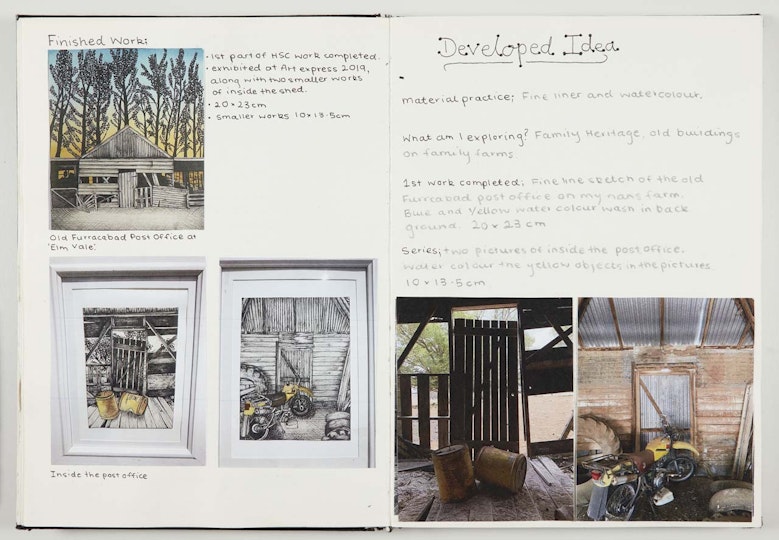 Finished Work:
• 1st part of HSC work completed.
• exhibited at Art express 2019,
along with two smaller works
of inside the shed.
• 20 x 23 cm
• smaller works 10 x 13.5cm
Old Furracabad Post Office at
'Elm Vale'.
Inside the post office
Developed Idea
material practice; Fine liner and watercolour.
What am I exploring? Family Heritage, old buildings
on family farms
1st work completed; Fine line sketch of the old
Furracabad post office on my nans farm.
Blue and Yellow water colour wash in back
ground. 20 x 23 cm
Series; two pictures of inside the post office.
water colour the yellow objects in the pictures
10 x 13.5cm